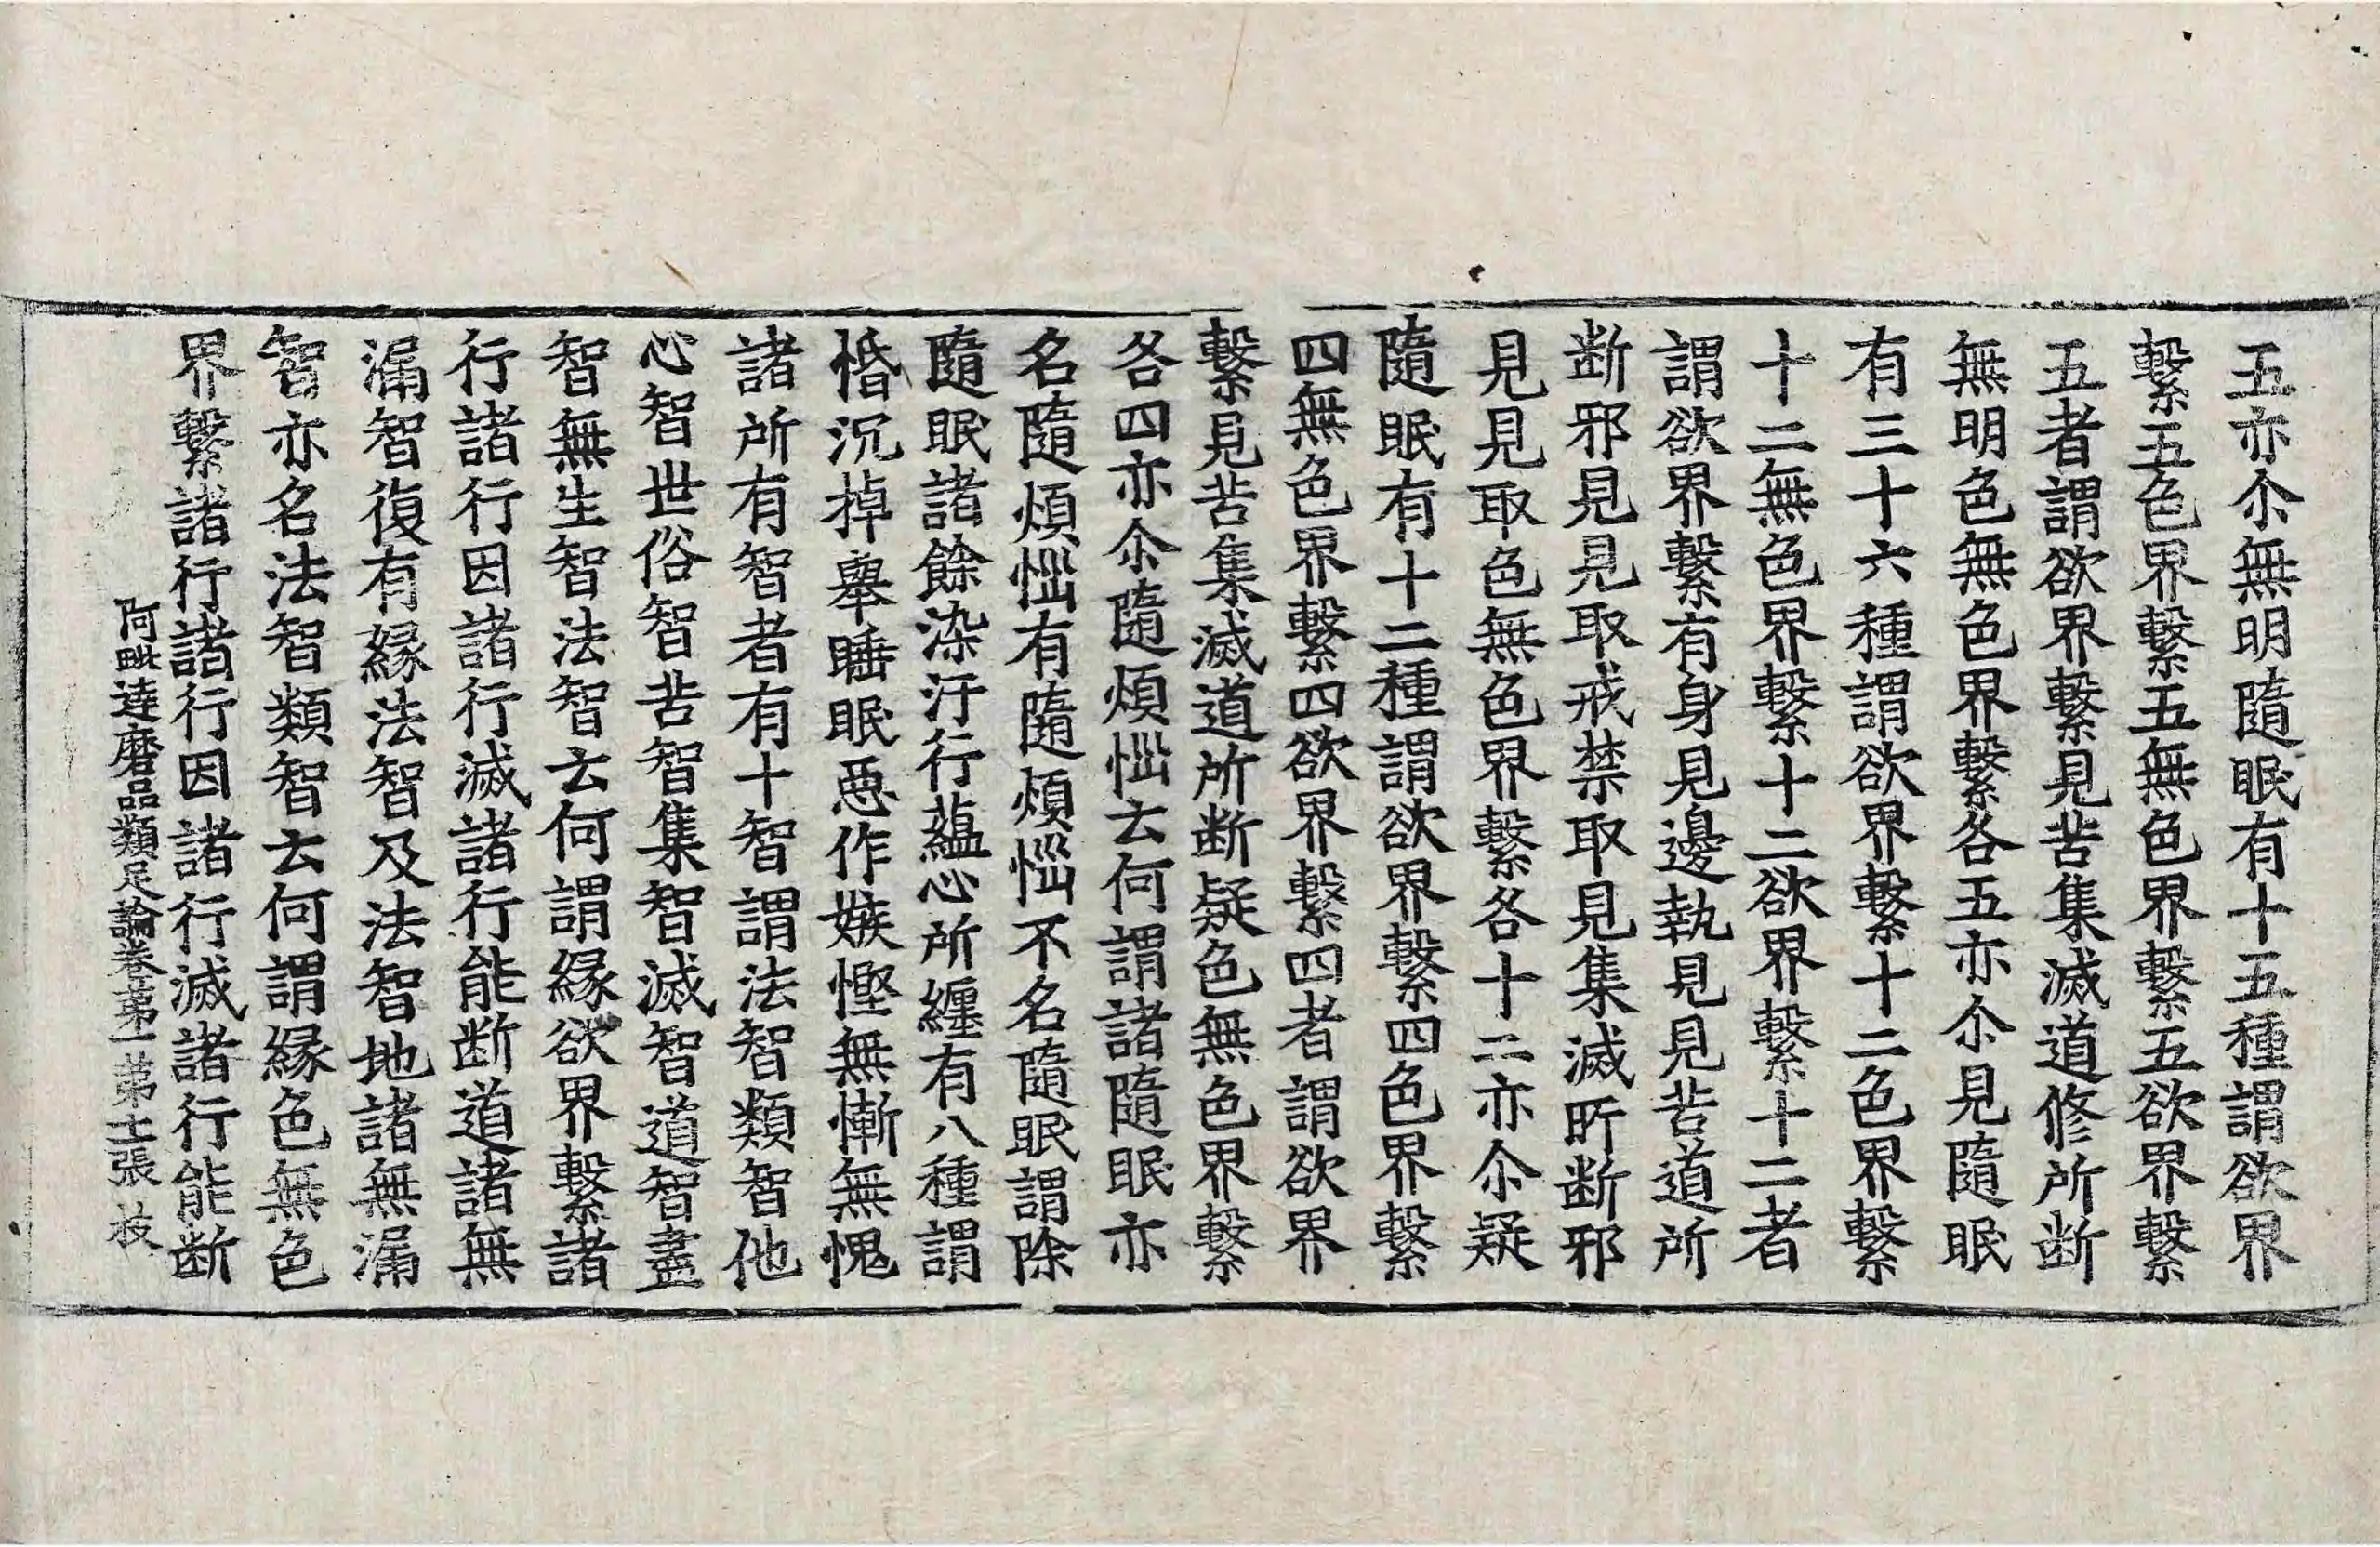 五亦尒無明隨眠有十五種謂欲界
繫五色界繫五無色界繫五欲界繫
五者謂欲界繫見苦集滅道修所断
無明色無色界繫各五亦尒見隨眠
有三十六種謂欲界繫十二色界繫
十二無色界繫十二欲界繫十二者
謂欲界繫有身見邊執見見苦道所
断邪見見取戒禁取見集滅所断邪
見見取色無色界繫各十二亦尒疑
隨眠有十二種謂欲界繫四色界繫
四無色界繫四欲界繫四者謂欲界
繫見苦集滅道所断疑色無色界繫
各四亦尒隨煩惱云何謂諸隨眠亦
名隨煩惱有隨煩惱不名隨眠謂除
隨眠諸餘染汙行蘊心所纏有八種謂
惛沉掉舉睡眠惡作嫉慳無慚無愧
諸所有智者有十智謂法智類智他
心智世俗智苦智集智滅智道智盡
智無生智法智云何謂緣欲界繫諸
行諸行因諸行滅諸行能断道諸無
漏智復有緣法智及法智地諸無漏
智亦名法智類智云何謂緣色無色
界繫諸行諸行因諸行滅諸行能断
阿毗達磨品類足論卷苐一 苐士張 枝